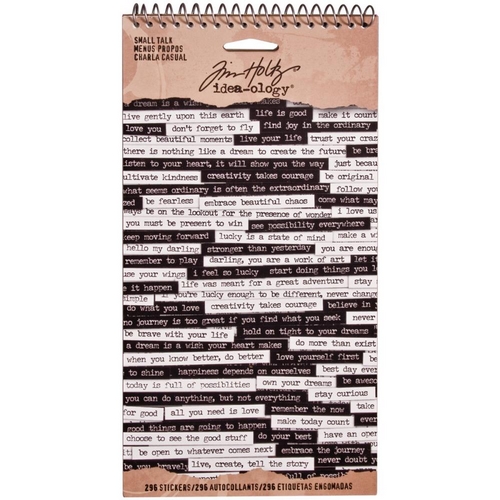 SMALL TALK
MENUS PROPOS
CHARLA CASUAL
Tim Holtz
idea-ology®
a dream is a wish
live gently upon this earth life is good make it count
love you don't forget to fly find joy in the ordinary
collect beautiful moments live your life trust your
there is nothing like a dream to create the future be
listen to your heart, it will show you the way just
cultivate kindness creativity takes courage be original
what seems ordinary is often the extraordinary follow
be fearless embrace beautiful chaos come what may
always be on the lookout for the presence of wonder i love
you must be present to win see possibility everywhere
keep moving forward lucky is a state of mind make a
hello my darling stronger than yesterday you are
remember to play darling, you are a work of art let
use your wings i feel so lucky start doing things you
let it happen life was meant for a great adventure stay
simple if you're lucky enough to be different, never
do what you love creativity takes courage believe in
no journey is too great if you find what you seek never
be brave with your life hold on tight to your dreams
a dream is a wish your heart makes do more than exist
when you know better, do better love yourself first be
to shine happiness depends on ourselves best day ever
today is full of possiblities own your dreams be
you can do anything, but not everything stay curious
for good all you need is love remember the now take
good things are going to happen make today count
choose to see the good stuff do your best have
be open to whatever comes next embrace the journey
be you bravely live, create, tell the story never doubt
296 STICKERS/296 AUTOCOLLANTS/296 ETIQUETAS ENGOMADAS